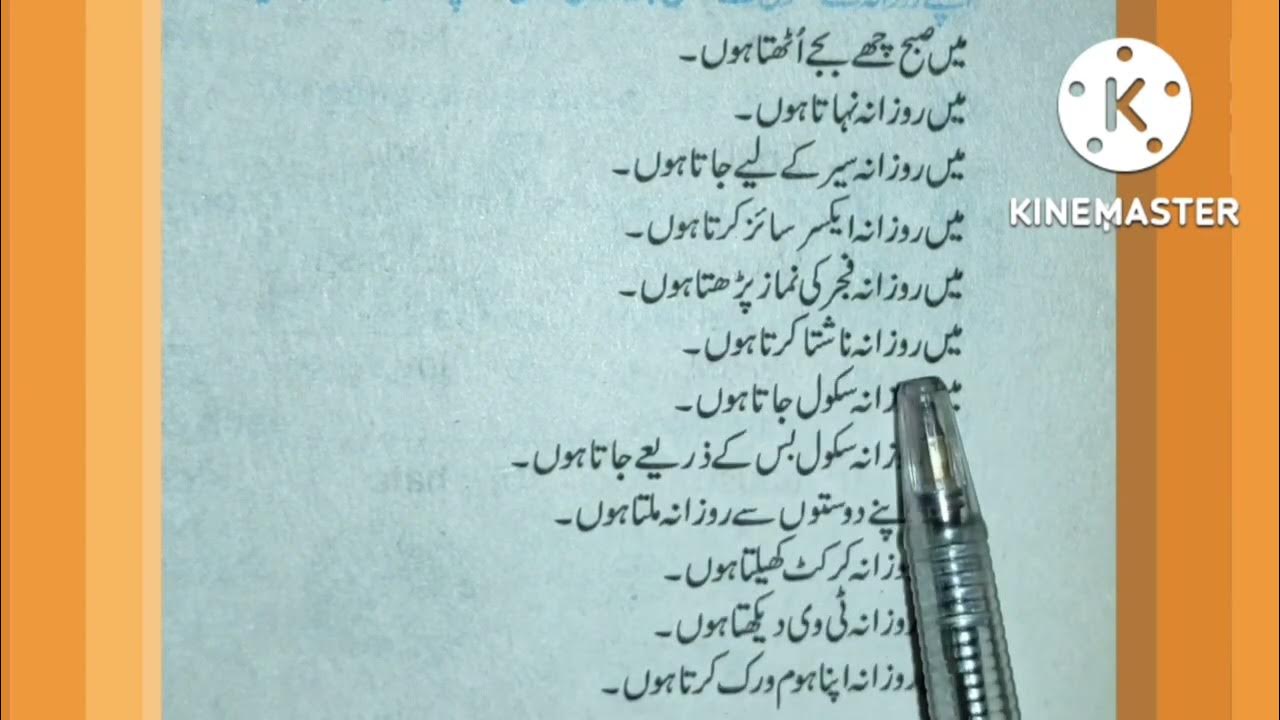 میں صبح چھے بجے اُٹھتا ہوں۔
میں روزانہ نہاتا ہوں۔
میں روزانہ سیر کے لیے جاتا ہوں۔
میں روزانہ ایکسر سائز کرتا ہوں۔
میں روزانہ فجر کی نماز پڑھتا ہوں۔
میں روزانہ ناشتا کرتا ہوں۔
سکول جاتا ہوں۔
سکول بس کے ذریعے جاتا ہوں۔
دوستوں سے روزانہ ملتا ہوں۔
کرکٹ کھیلتا ہوں۔
روزانہ ٹی وی دیکھتا ہوں۔
روزانہ اپنا ہوم ورک کرتا ہوں۔
KINEMASTER